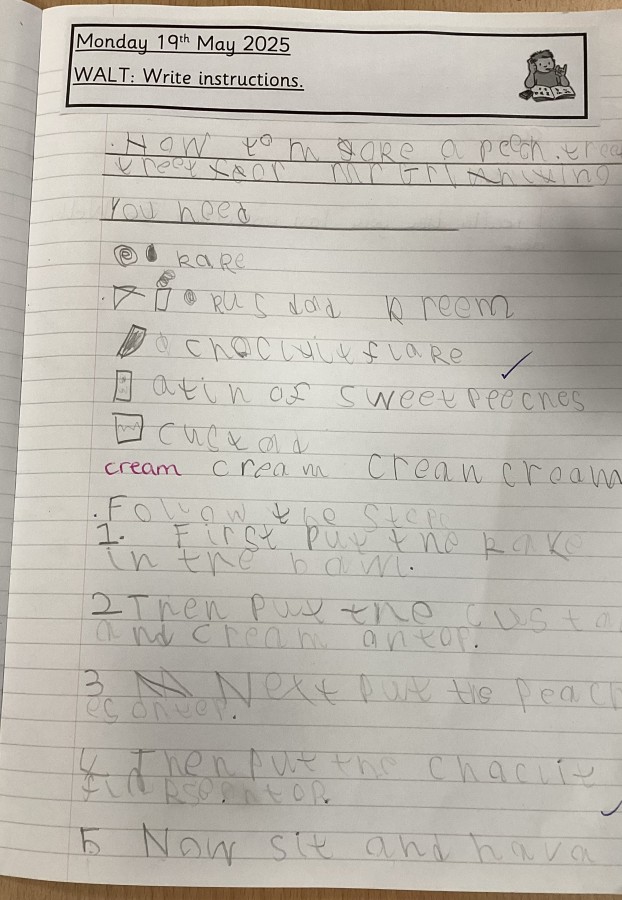 Monday 19th May 2025
WALT: Write instructions.
How to make a peech
treet for mr
You need
kake
kusdad kreem
choclvitflake
atin of sweetpeeches
custad
cream cream crean cream
.Follow the Steps
1. First put the kake
in the bawl.
2 Then put the custa
and cream antop.
3 Next put the peach
es onver.
4 Then put the chaclit
antop.
5 Now sit and hava